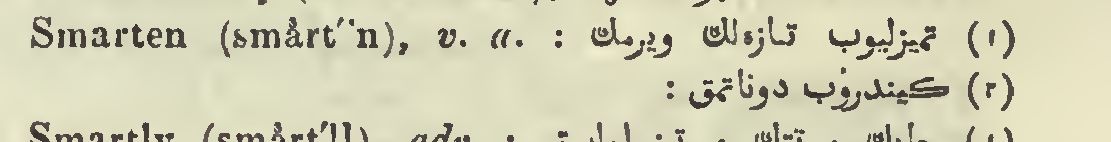 Smarten (smårt′'n), v. a. : (١) تمیزلیوب تازه‌لك ویرمك
(٢) كیندروب دوناتمق :
Smartly (smårt′lĭ), adv. : (١)